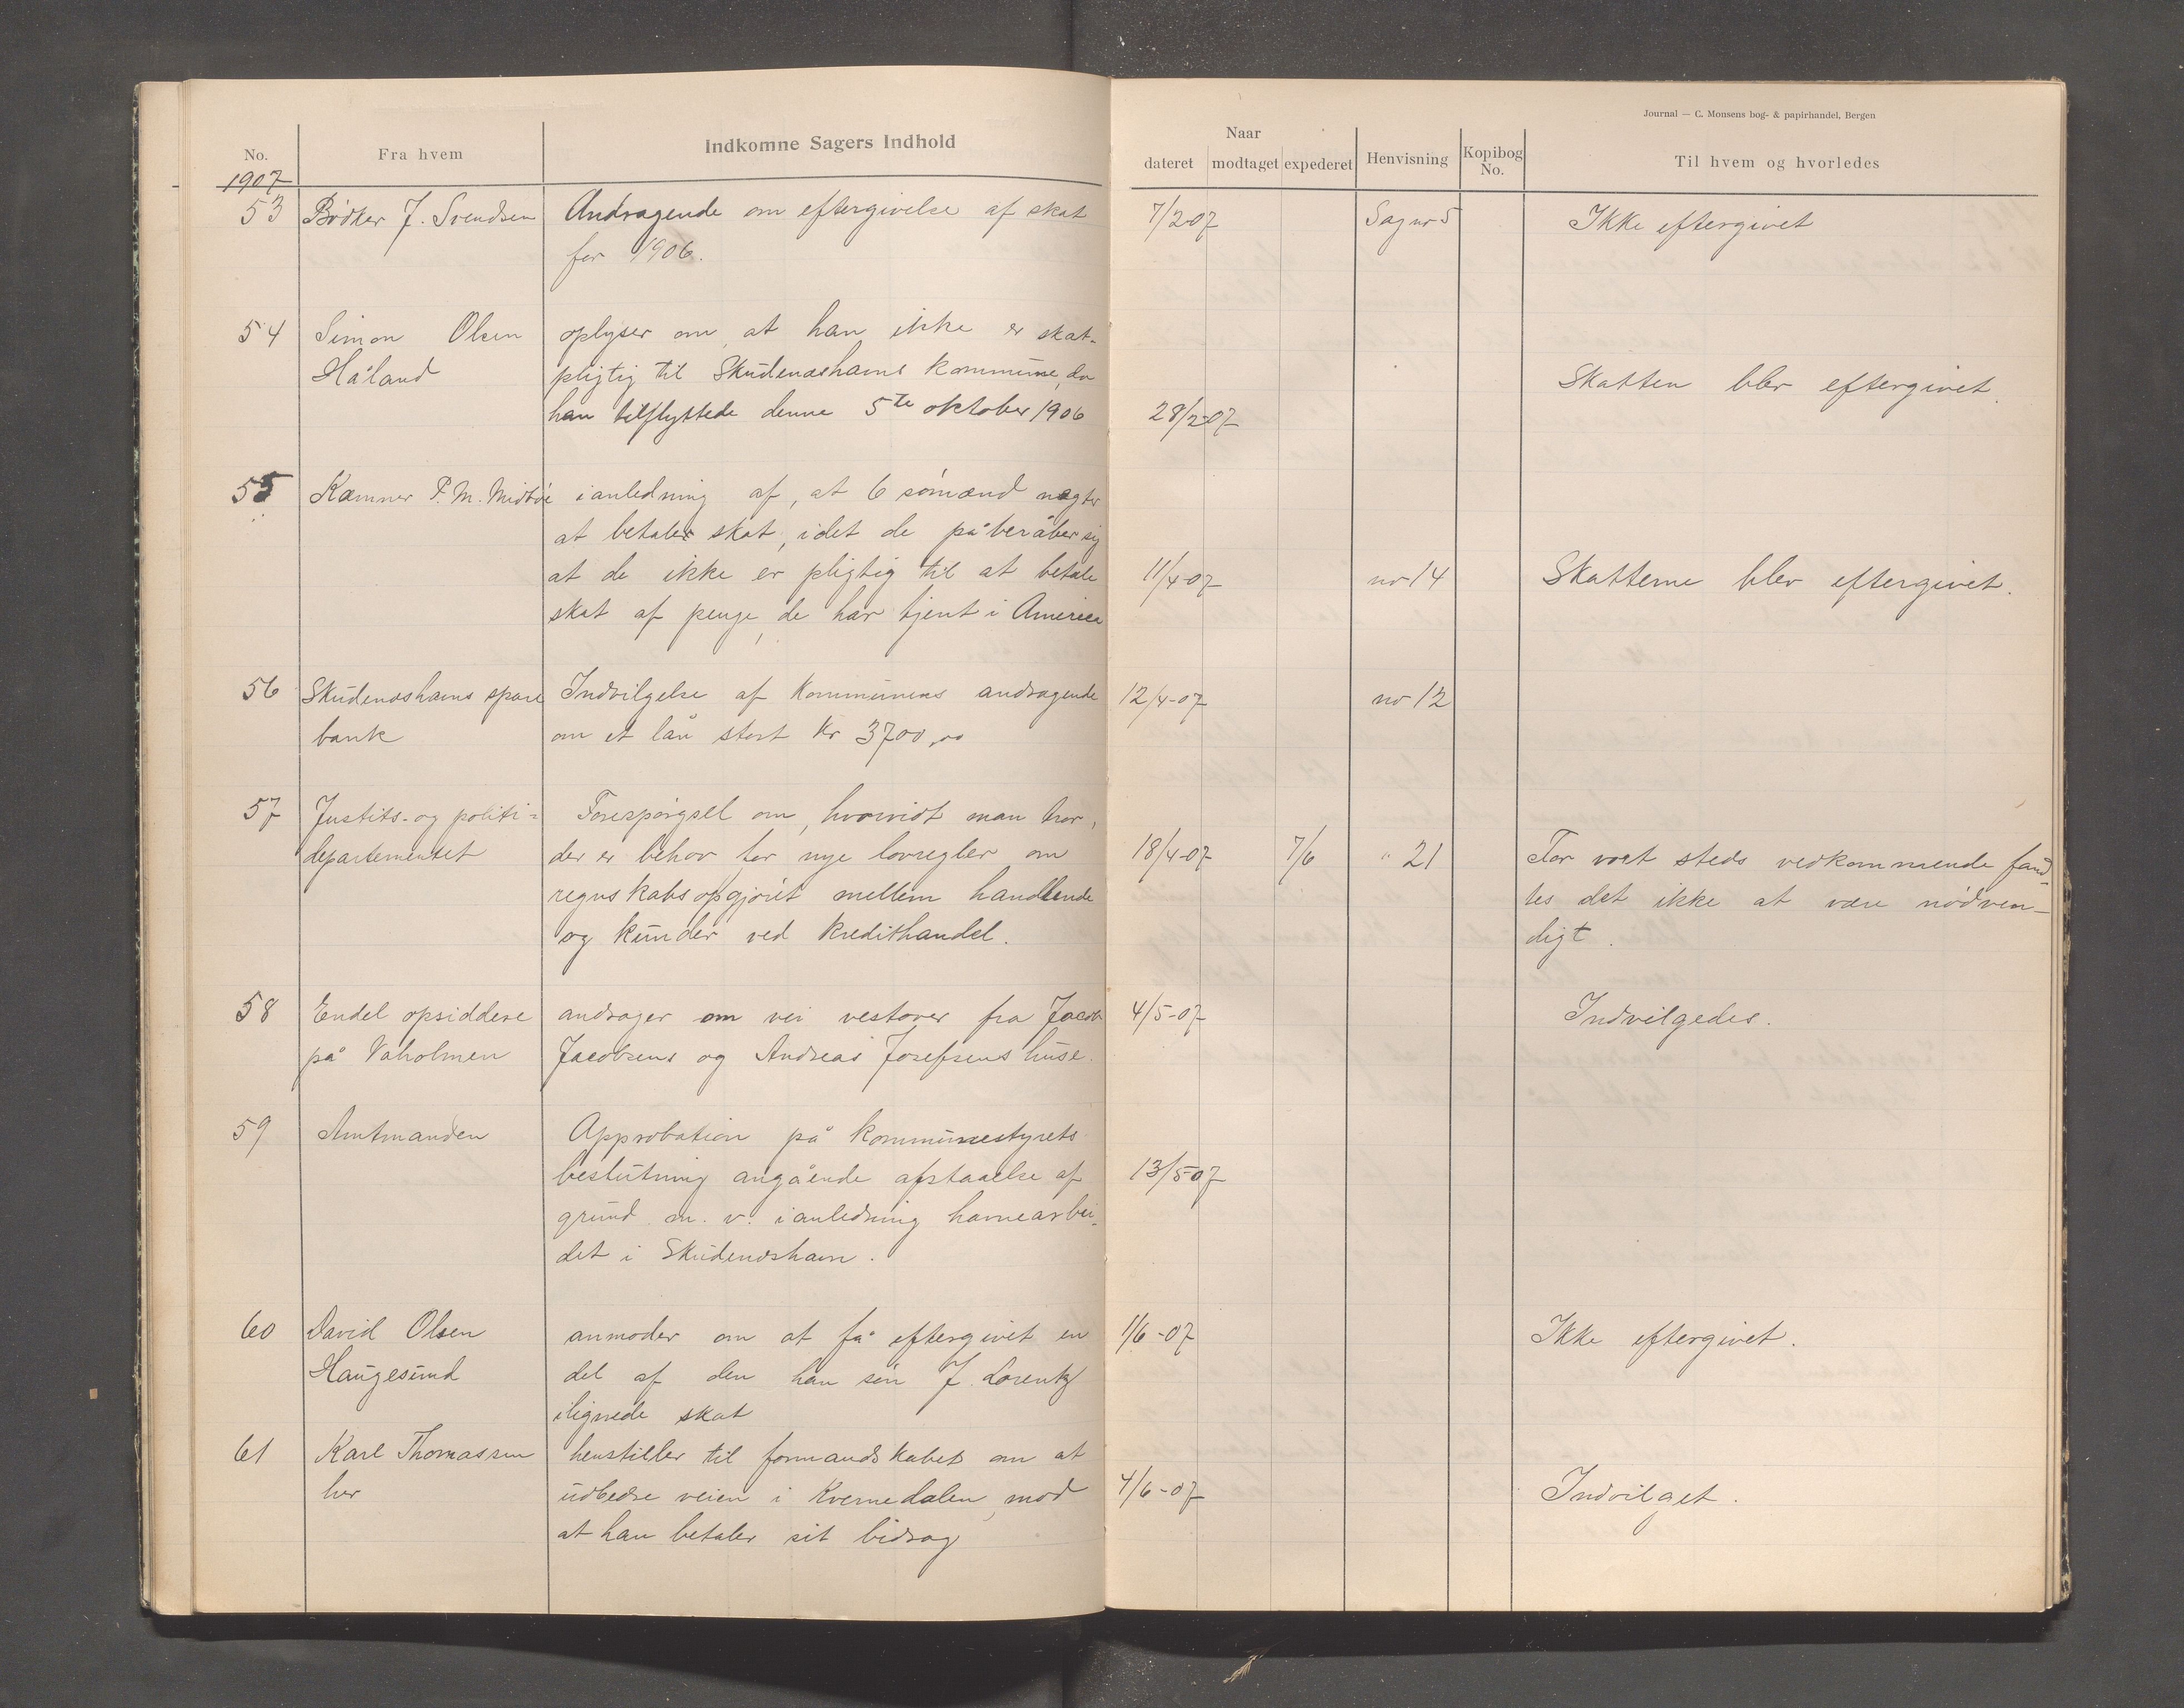 Journal — C. Monsens bog- & papirhandel, Bergen
No. Fra hvem Indkomne Sagers Indhold Naar dateret modtaget expederet Henvisning Kopibog No. Til hvem og hvorledes
1907
53 Bødker J. Svendsen Andragende om eftergivelse af skat 7/2-07 Sag nr 5 Ikke eftergivet
for 1906.
54 Simon Olsen oplyser om, at han ikke er skat-
Håland pligtig til Skudeneshavns kommune, da Skatten blev eftergivet.
han tilflyttede denne 5te oktober 1906 28/2-07
55 Kæmner P. M. Midbøe i anledning af, at 6 sømænd nægter
at betaler skat, idet de påberåber sig
at de ikke er pligtig til at betale 11/4-07 nr 14 Skatterne blev eftergivet.
skat af penge, de har tjent i America
56 Skudeneshavns spare Indvilgelse af kommunens andragende 12/4-07 nr 12
bank om et lån stort kr 3700,00
57 Justits- og politi- Forespørgsel om, hvorvidt man tror,
departementet der er behov for nye lovregler om 18/4-07 7/6 " 21 For vort steds vedkommende fand-
regnskabsopgjøret mellem handlende tes det ikke at være nødven-
og kunder ved kredithandel. digt.
58 Endel opsiddere andrager om vei vestover fra Jacob 4/5-07 Indvilgedes.
på Vaholmen Jacobsens og Andreas Josefsens huse.
59 Amtmanden Approbation på kommunestyrets
beslutning angående afstaaelse af 13/5-07
grund m. v. i anledning havnearbei-
det i Skudeneshavn.
60 David Olsen anmoder om at få eftergivet en 1/6-07 Ikke eftergivet.
Haugesund del af den han søn J. Lorentz
ilignede skat
61 Karl Thomassen henstiller til formandskabet om at
her udbedre veien i Kvernedalen, mod 4/6-07 Indvilget.
at han betaler sit bidrag